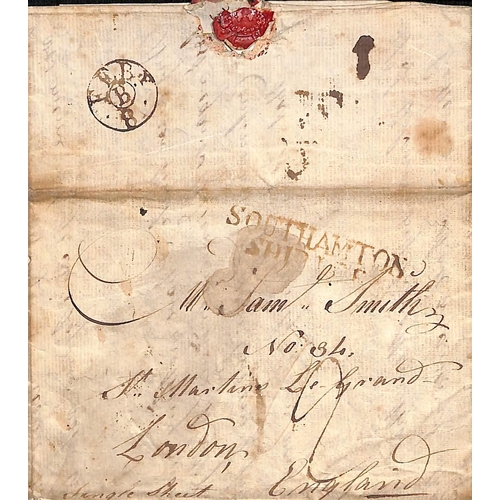 FEBY
B
8
SOUTHAMTON
SHIP LRE
Mr. Saml. Smith
No. 34.
St. Martins Le Grand
London,
England
Single Sheet